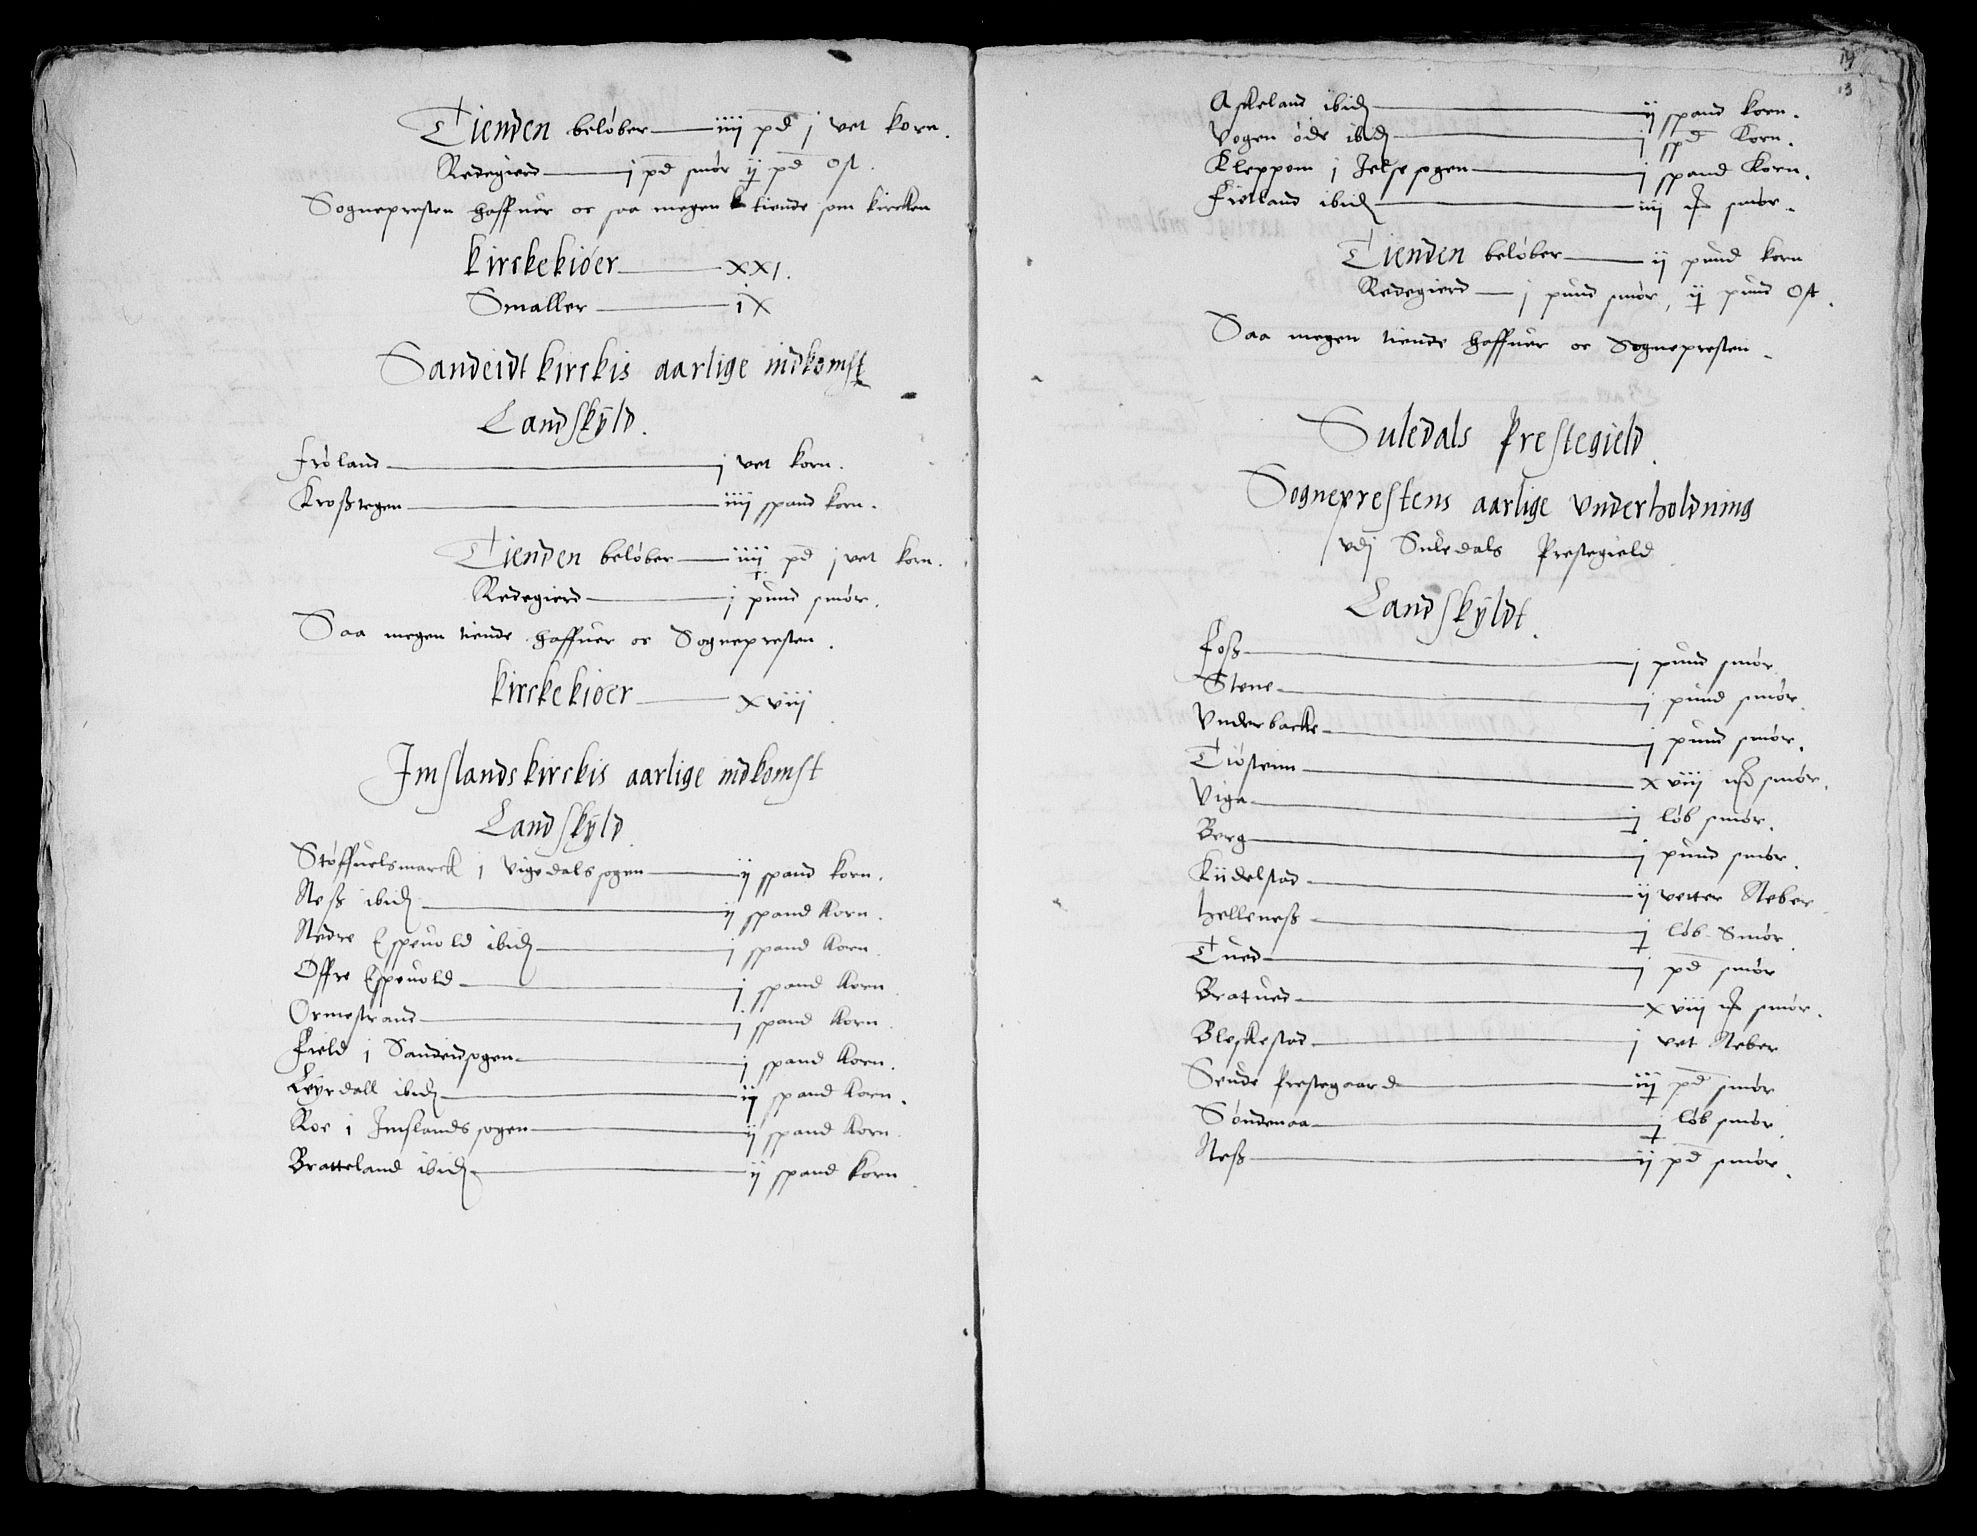 Tienden beløber — iiij pd j vet korn.
Redegierd — j pd smør ij pd Ost.
Sognepresten haffuer oc saa megen tiende som kircken
Kirckekiøer — xxj.
Smaller — ix
Sandeidt kirckis aarlige indkomst
Landskyld.
Frøland — j vet korn.
Kroßtegen — iiij spand korn.
Tienden beløber — iiij pd j vet korn.
Redegierd — j pund smør.
Saa megen tiende haffuer oc Sognepresten.
Kirckekiøer — xviij
Imslandskirckis aarlige indkomst
Landskyld
Støffuelsmarck i vigedalssogen — ij spand korn.
Neß ibid — ij spand korn.
Nedre Espeuold ibid — j spand korn.
Offre Espeuold — j spand korn.
Ormestrand — j spand korn.
Field i Sandeidsogen — j spand korn.
Leyrdall ibid — iij spand korn.
Roe i Imslandssogen — ij spand korn.
Bratteland ibid — ij spand korn.
14
13
Askeland ibid — ij spand korn.
Vogen øde ibid — j spd korn.
Kleppom i Jelsesogen — j spand korn.
Frøland ibid — iiij smør.
Tienden beløber — ij pund korn
Redegierd — j pund smør, ij pund Ost.
Saa megen tiende haffuer oc Sognepresten.
Suledals Prestegield.
Sogneprestens aarlige Vnderholdning
vdj Suledals Prestegield.
Landskyldt.
Foß — j pund smør.
Stene — j pund smør.
Vnderbacke — j pund smør.
Tiøsteim — xviij smør.
Viga — j løb smør.
Berg — j pund smør.
Kiidelstad — ij vetter Neber
Helleneß — j løb Smør.
Tued — j pd smør
Bratued — xviij smør.
Bleskestad — j vet Neber
Sende Prestegaard — iij pd smør
Søndenaa — j løb smør.
Neß — ij pd smør.